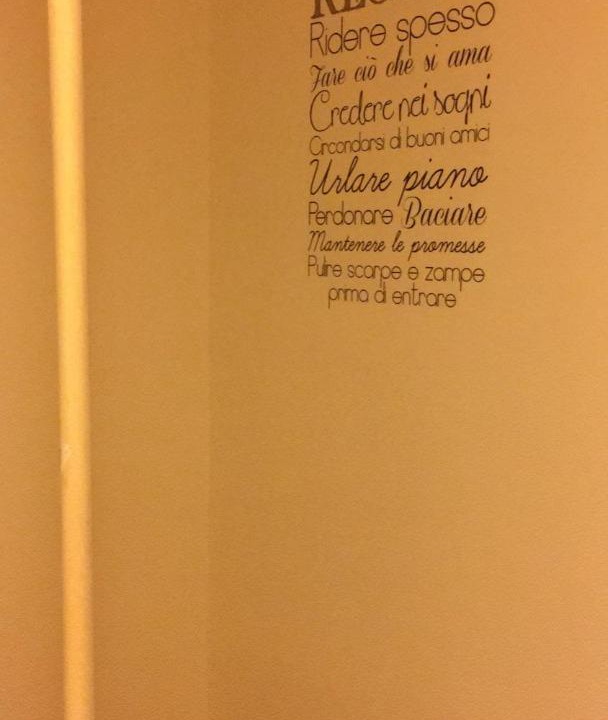 Ridere spesso
Fare ciò che si ama
Credere nei sogni
Circondarsi di buoni amici
Urlare piano
Perdonare Baciare
Mantenere le promesse
Pulire scarpe e zampe
prima di entrare